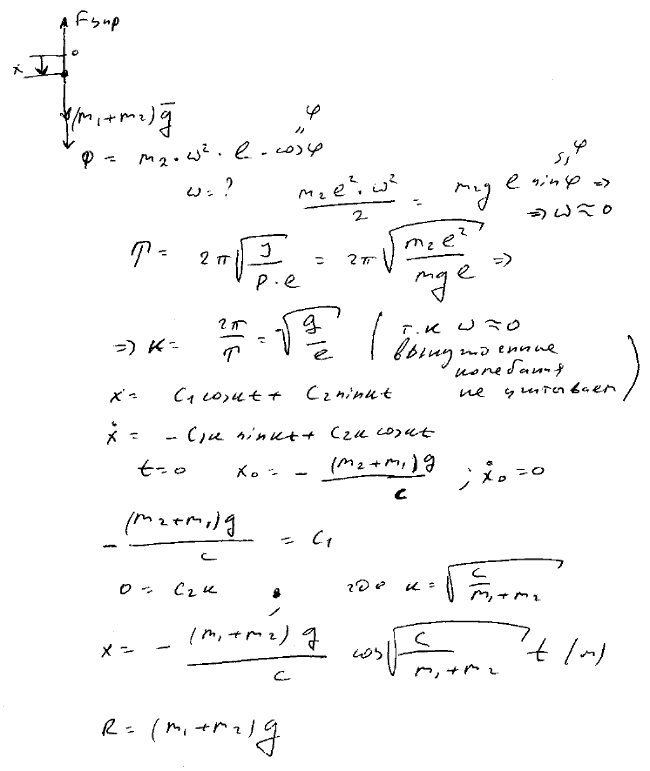 Fупр
o
x
(m₁+m₂)g̅
φ = m₂·ω²·l·cosφ
φ
ω = ?
m₂l²·ω²/2 = m₂g l sinφ ⇒
φ
⇒ ω≈0
T = 2π√(J/(P·l)) = 2π√(m₂l²/(mgl)) ⇒
⇒ k = 2π/T = √(g/l) (т.к ω≈0
вынужденные
колебания
не учитываем)
x = C₁coskt + C₂sinkt
ẋ = −C₁k sinkt + C₂k coskt
t=0 x₀ = −(m₂+m₁)g/c ; ẋ₀=0
−(m₂+m₁)g/c = C₁
0 = C₂k , где k = √(c/(m₁+m₂))
x = −(m₁+m₂)g/c cos√(c/(m₁+m₂)) t (м)
R = (m₁+m₂)g